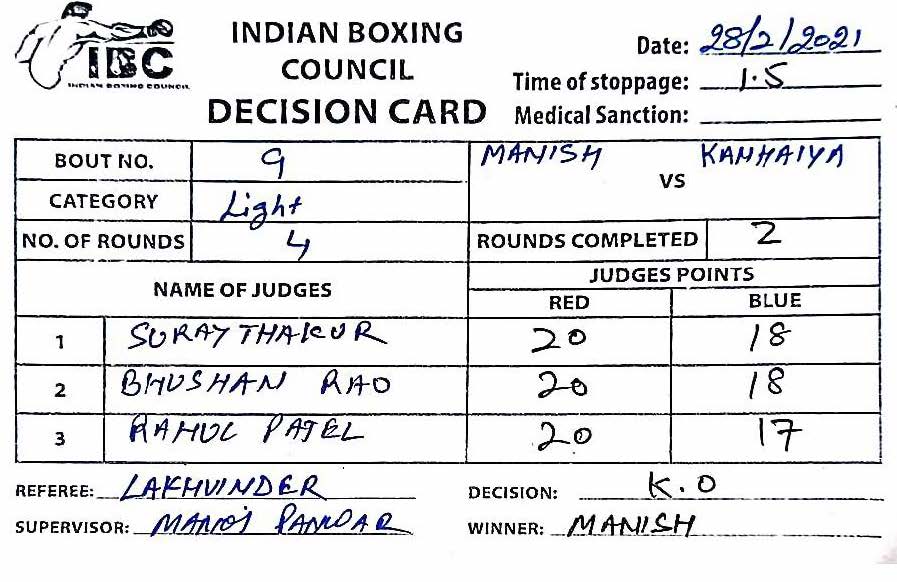 IBC
INDIAN BOXING COUNCIL
INDIAN BOXING
COUNCIL
DECISION CARD
Date: 28/2/2021
Time of stoppage: 1.5
Medical Sanction:
BOUT NO. 9
CATEGORY Light
NO. OF ROUNDS 4
MANISH VS KANHAIYA
ROUNDS COMPLETED 2
NAME OF JUDGES
JUDGES POINTS
RED BLUE
1 SURAY THAKUR 20 18
2 BHUSHAN RAO 20 18
3 RAHUL PATEL 20 17
REFEREE: LAKHVINDER
DECISION: K.O
SUPERVISOR: MANOJ
WINNER: MANISH